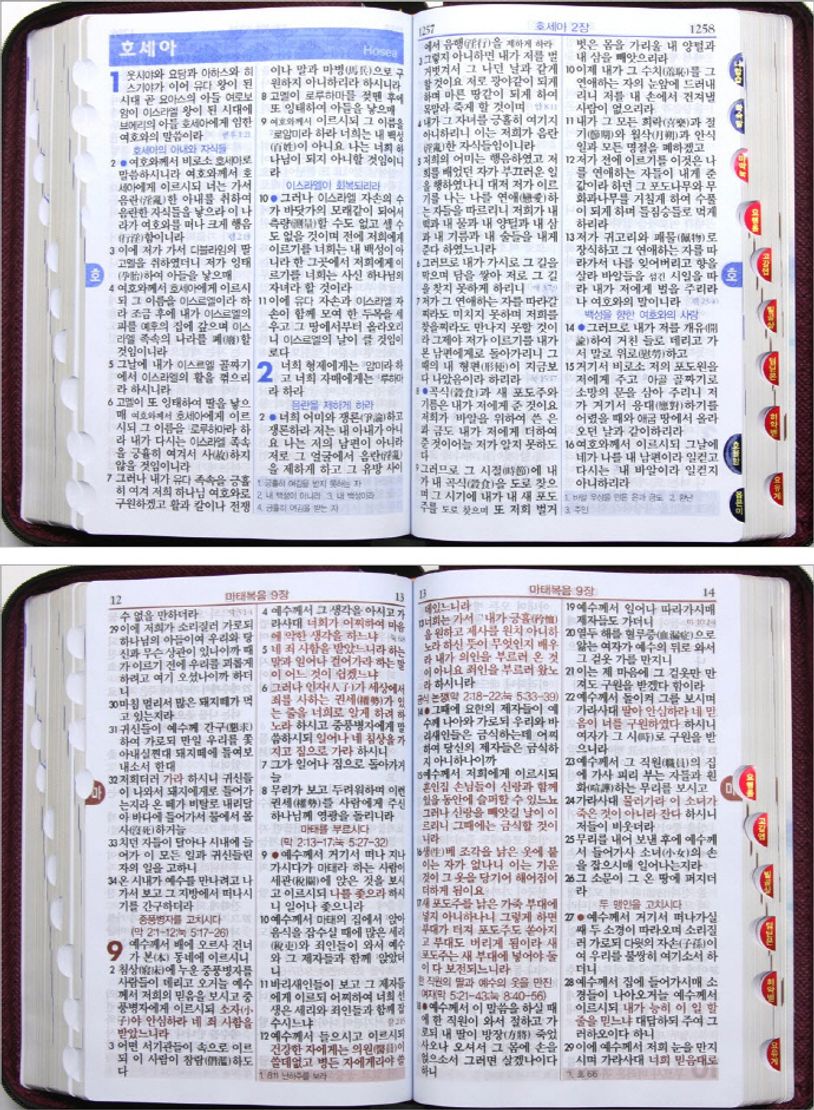 호세아
Hosea
1 웃시야와 요담과 아하스와 히
스기야가 이어 유다 왕이 된
시대 곧 요아스의 아들 여로보
암이 이스라엘 왕이 된 시대에
브에리의 아들 호세아에게 임한
여호와의 말씀이라
호세아의 아내와 자식들
2 ● 여호와께서 비로소 호세아로
말씀하시니라 여호와께서 호
세아에게 이르시되 너는 가서
음란한 아내를 취하여
음란한 자식들을 낳으라 이 나
라가 여호와를 떠나 크게 행음
(行淫)함이니라
3 이에 저가 가서 디블라임의 딸
고멜을 취하였더니 저가 잉태
(孕胎)하여 아들을 낳으매
4 여호와께서 호세아에게 이르시
되 그 이름을 이스르엘이라 하
라 조금 후에 내가 이스르엘의
피를 예후의 집에 갚으며 이스
라엘 족속의 나라를 폐(廢)할
것임이니라
5 그날에 내가 이스르엘 골짜기
에서 이스라엘의 활을 꺾으리
라 하시니라
6 고멜이 또 잉태하여 딸을 낳으
매 여호와께서 호세아에게 이르
시되 그 이름을 로루하마라 하
라 내가 다시는 이스라엘 족속
을 긍휼히 여겨서 사(赦)하지
않을 것임이니라
7 그러나 내가 유다 족속을 긍휼
히 여겨 저희 하나님 여호와로
구원하겠고 활과 칼이나 전쟁
이나 말과 마병(馬兵)으로 구
원하지 아니하리라 하시니라
8 고멜이 로루하마를 젖뗀 후에
또 잉태하여 아들을 낳으매
9 여호와께서 이르시되 그 이름을
로암미라 하라 너희는 내 백성
(百姓)이 아니요 나는 너희 하
나님이 되지 아니할 것임이니
라
이스라엘이 회복되리라
10 ● 그러나 이스라엘 자손의 수
가 바닷가의 모래같이 되어서
측량(測量)할 수도 없고 셀 수
도 없을 것이며 전에 저희에게
이르기를 너희는 내 백성이 아
니라 한 그곳에서 저희에게 이
르기를 너희는 사신 하나님의
자녀라 할 것이라
11 이에 유다 자손과 이스라엘 자
손이 함께 모여 한 두목을 세
우고 그 땅에서부터 올라오리
니 이스르엘의 날이 클 것임이
로다
2 너희 형제에게는 암미라 하
고 너희 자매에게는 루하마
라 하라
음란을 제하게 하라
2 ● 너희 어미와 쟁론(爭論)하고
쟁론하라 저는 내 아내가 아니
요 나는 저의 남편이 아니라
저로 그 얼굴에서 음란(淫亂)
을 제하게 하고 그 유방 사이
1. 긍휼히 여김을 받지 못하는 자
2. 내 백성이 아니라 3. 내 백성이라
4. 긍휼히 여김을 받는 자
호
1257
호세아 2장
1258
에서 음행(淫行)을 제하게 하라
3 그렇지 아니하면 내가 저를 벌
거벗겨서 그 나던 날과 같게
할 것이요 저로 광야같이 되게
하며 마른 땅같이 되게 하여
목말라 죽게 할 것이며
4 내가 그 자녀를 긍휼히 여기지
아니하리니 이는 저희가 음란
한 자식들임이니라
5 저희의 어미는 행음하였고 저
희를 배었던 자가 부끄러운 일
을 행하였나니 대저 저가 이르
기를 나는 나를 연애(戀愛)하
는 자들을 따르리니 저희가 내
떡과 내 물과 내 양털과 내 삼
과 내 기름과 내 술들을 내게
준다 하였느니라
6 그러므로 내가 가시로 그 길을
막으며 담을 쌓아 저로 그 길
을 찾지 못하게 하리니
7 저가 그 연애하는 자를 따라갈
찌라도 미치지 못하며 저희를
찾을찌라도 만나지 못할 것이
라 그제야 저가 이르기를 내가
본 남편에게로 돌아가리니 그
때의 내 형편(形便)이 지금보
다 나았음이라 하리라
8 ● 곡식(穀食)과 새 포도주와
기름은 내가 저에게 준 것이요
저희가 바알을 위하여 쓴 은
과 금도 내가 저에게 더하여
준 것이어늘 저가 알지 못하도
다
9 그러므로 그 시절(時節)에 내
가 내 곡식(穀食)을 도로 찾으
며 그 시기에 내가 내 새 포도
주를 도로 찾으며 또 저희 벌거
벗은 몸을 가리울 내 양털과
내 삼을 빼앗으리라
10 이제 내가 그 수치(羞恥)를 그
연애하는 자의 눈앞에 드러내
리니 저를 내 손에서 건져낼
사람이 없으리라
11 내가 그 모든 희락(喜樂)과 절
기(節期)와 월삭(月朔)과 안식
일과 모든 명절을 폐하겠고
12 저가 전에 이르기를 이것은 나
를 연애하는 자들이 내게 준
값이라 하던 그 포도나무와 무
화과나무를 거칠게 하여 수풀
이 되게 하며 들짐승들로 먹게
하리라
13 저가 귀고리와 패물(佩物)로
장식하고 그 연애하는 자를 따
라가서 나를 잊어버리고 향을
살라 바알들을 섬긴 시일을 따
라 내가 저에게 벌을 주리라
나 여호와의 말이니라
백성을 향한 여호와의 사랑
14 ● 그러므로 내가 저를 개유(開
諭)하여 거친 들로 데리고 가
서 말로 위로(慰勞)하고
15 거기서 비로소 저의 포도원을
저에게 주고 아골 골짜기로
소망의 문을 삼아 주리니 저
가 거기서 응대(應對)하기를
어렸을 때와 애굽 땅에서 올라
오던 날과 같이하리라
16 여호와께서 이르시되 그날에
네가 나를 내 남편이라 일컫고
다시는 내 바알이라 일컫지
아니하리라
1. 바알 우상을 만든 은과 금도 2. 환난
3. 주인
호
12
마태복음 9장
13
수 없을 만하더라
29 이에 저희가 소리질러 가로되
하나님의 아들이여 우리와 당
신과 무슨 상관이 있나이까 때
가 이르기 전에 우리를 괴롭게
하려고 여기 오셨나이까 하더
니
30 마침 멀리서 많은 돼지떼가 먹
고 있는지라
31 귀신들이 예수께 간구(懇求)
하여 가로되 만일 우리를 쫓
아내실찐대 돼지떼에 들여보
내소서 한대
32 저희더러 가라 하시니 귀신들
이 나와서 돼지에게로 들어가
는지라 온 떼가 비탈로 내리달
아 바다에 들어가서 물에서 몰
사(沒死)하거늘
33 치던 자들이 달아나 시내에 들
어가 이 모든 일과 귀신들린
자의 일을 고하니
34 온 시내가 예수를 만나려고 나
가서 보고 그 지방에서 떠나시
기를 간구하더라
중풍병자를 고치시다
(막 2:1-12;눅 5:17-26)
9 예수께서 배에 오르사 건너
가 본(本) 동네에 이르시니
2 침상(寢床)에 누운 중풍병자를
사람들이 데리고 오거늘 예수
께서 저희의 믿음을 보시고 중
풍병자에게 이르시되 소자(小
子)야 안심하라 네 죄 사함을
받았느니라
3 어떤 서기관들이 속으로 이르
되 이 사람이 참람(僭濫)하도
다
4 예수께서 그 생각을 아시고 가
라사대 너희가 어찌하여 마음
에 악한 생각을 하느냐
5 네 죄 사함을 받았느니라 하는
말과 일어나 걸어가라 하는 말
이 어느 것이 쉽겠느냐
6 그러나 인자(人子)가 세상에서
죄를 사하는 권세(權勢)가 있
는 줄을 너희로 알게 하려 하
노라 하시고 중풍병자에게 말
씀하시되 일어나 네 침상을 가
지고 집으로 가라 하시니
7 그가 일어나 집으로 돌아가거
늘
8 무리가 보고 두려워하며 이런
권세(權勢)를 사람에게 주신
하나님께 영광을 돌리니라
마태를 부르시다
(막 2:13-17;눅 5:27-32)
9 ● 예수께서 거기서 떠나 지나
가시다가 마태라 하는 사람이
세관(稅關)에 앉은 것을 보시
고 이르시되 나를 좇으라 하시
니 일어나 좇으니라
10 예수께서 마태의 집에서 앉아
음식을 잡수실 때에 많은 세리
(稅吏)와 죄인들이 와서 예수
와 그 제자들과 함께 앉았더
니
11 바리새인들이 보고 그 제자들
에게 이르되 어찌하여 너희 선
생은 세리와 죄인들과 함께 잡
수시느냐
12 예수께서 들으시고 이르시되
건강한 자에게는 의원(醫員)이
쓸데없고 병든 자에게라야 쓸
1. 8:11 난하주를 보라
마
13
마태복음 9장
14
데있느니라
13 너희는 가서 내가 긍휼(矜恤)
을 원하고 제사를 원치 아니하
노라 하신 뜻이 무엇인지 배우
라 내가 의인을 부르러 온 것
이 아니요 죄인을 부르러 왔노
라 하시니라
금식 논쟁(막 2:18-22;눅 5:33-39)
14 ● 그때에 요한의 제자들이 예
수께 나아와 가로되 우리와 바
리새인들은 금식하는데 어찌
하여 당신의 제자들은 금식하
지 아니하나이까
15 예수께서 저희에게 이르시되
혼인집 손님들이 신랑과 함께
있을 동안에 슬퍼할 수 있느뇨
그러나 신랑을 빼앗길 날이 이
르리니 그때에는 금식할 것이
니라
16 생(生)베 조각을 낡은 옷에 붙
이는 자가 없나니 이는 기운
것이 그 옷을 당기어 해어짐이
더하게 됨이요
17 새 포도주를 낡은 가죽 부대에
넣지 아니하나니 그렇게 하면
부대가 터져 포도주도 쏟아지
고 부대도 버리게 됨이라 새
포도주는 새 부대에 넣어야 둘
이 다 보전되느니라
한 직원의 딸과 예수의 옷을 만진
여자(막 5:21-43;눅 8:40-56)
18 ● 예수께서 이 말씀을 하실 때
에 한 직원이 와서 절하고 가
로되 내 딸이 방장(方將) 죽었
사오나 오셔서 그 몸에 손을
얹으소서 그러면 살겠나이다
하니
19 예수께서 일어나 따라가시매
제자들도 가더니
20 열두 해를 혈루증(血漏症)으로
앓는 여자가 예수의 뒤로 와서
그 겉옷 가를 만지니
21 이는 제 마음에 그 겉옷만 만
져도 구원을 받겠다 함이라
22 예수께서 돌이켜 그를 보시며
가라사대 딸아 안심하라 네 믿
음이 너를 구원하였다 하시니
여자가 그 시(時)로 구원을 받
으니라
23 예수께서 그 직원(職員)의 집
에 가사 피리 부는 자들과 훤
화(喧譁)하는 무리를 보시고
24 가라사대 물러가라 이 소녀가
죽은 것이 아니라 잔다 하시니
저들이 비웃더라
25 무리를 내어 보낸 후에 예수께
서 들어가사 소녀(小女)의 손
을 잡으시매 일어나는지라
26 그 소문이 그 온 땅에 퍼지더
라
두 맹인을 고치시다
27 ● 예수께서 거기서 떠나가실
쌔 두 소경이 따라오며 소리질
러 가로되 다윗의 자손(子孫)이
여 우리를 불쌍히 여기소서 하
더니
28 예수께서 집에 들어가시매 소
경들이 나아오거늘 예수께서
이르시되 내가 능히 이 일 할
줄을 믿느냐 대답하되 주여 그
러하오이다 하니
29 이에 예수께서 저희 눈을 만지
시며 가라사대 너희 믿음대로
마